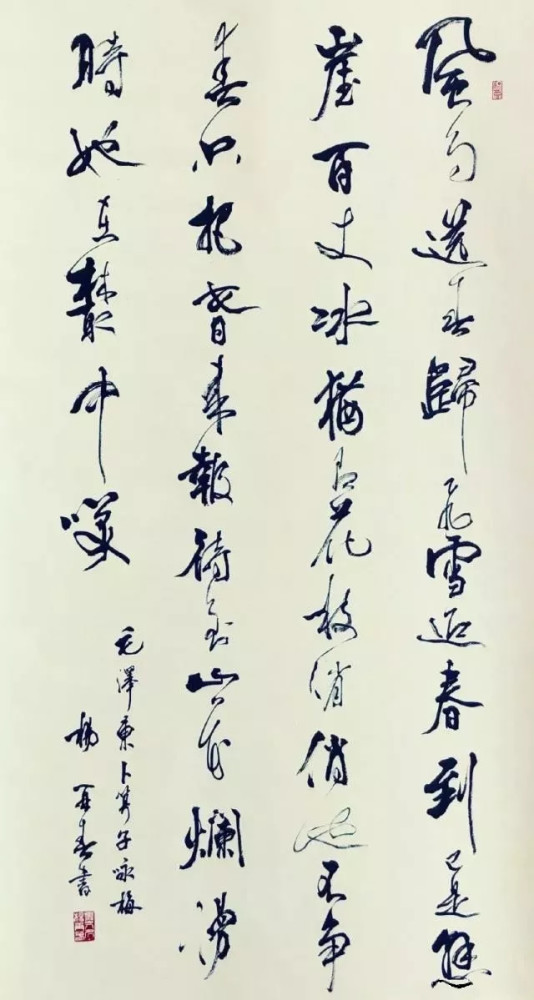 風雨送春歸飛雪迎春到已是懸
崖百丈冰猶有花枝俏俏也不爭
春只把春來報待到山花爛漫
時她在叢中笑
毛澤東卜算子咏梅
楊再春書